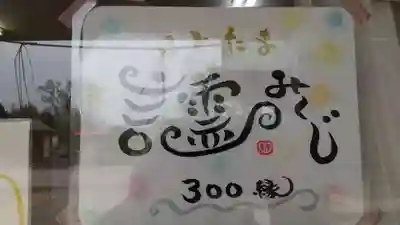 ことたま
言霊みくじ
300縁